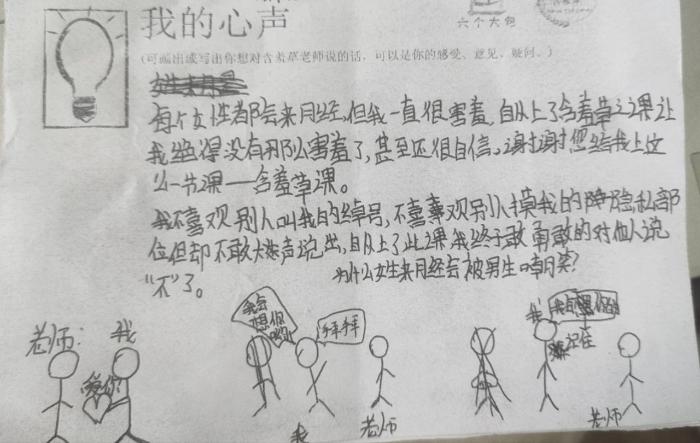 我的心声
六个大包
(可画出或写出你想对含羞草老师说的话,可以是你的感受、意见、疑问。)
每个女性都会来月经,但我一直很害羞,自从上了含羞草之课让
我绝得没有那么害羞了,甚至还很自信。谢谢您给我上这
么一节课——含羞草课。
我不喜欢别人叫我的绰号,不喜欢别人摸我的隐私部
位但却不敢大声说出,自从上了此课我终于敢勇敢的对他人说
“不”了。
为什么女生来月经会被男生嘲笑?
老师:
我
爱你
我会想你
拜拜
我
老师
我
记住
老师